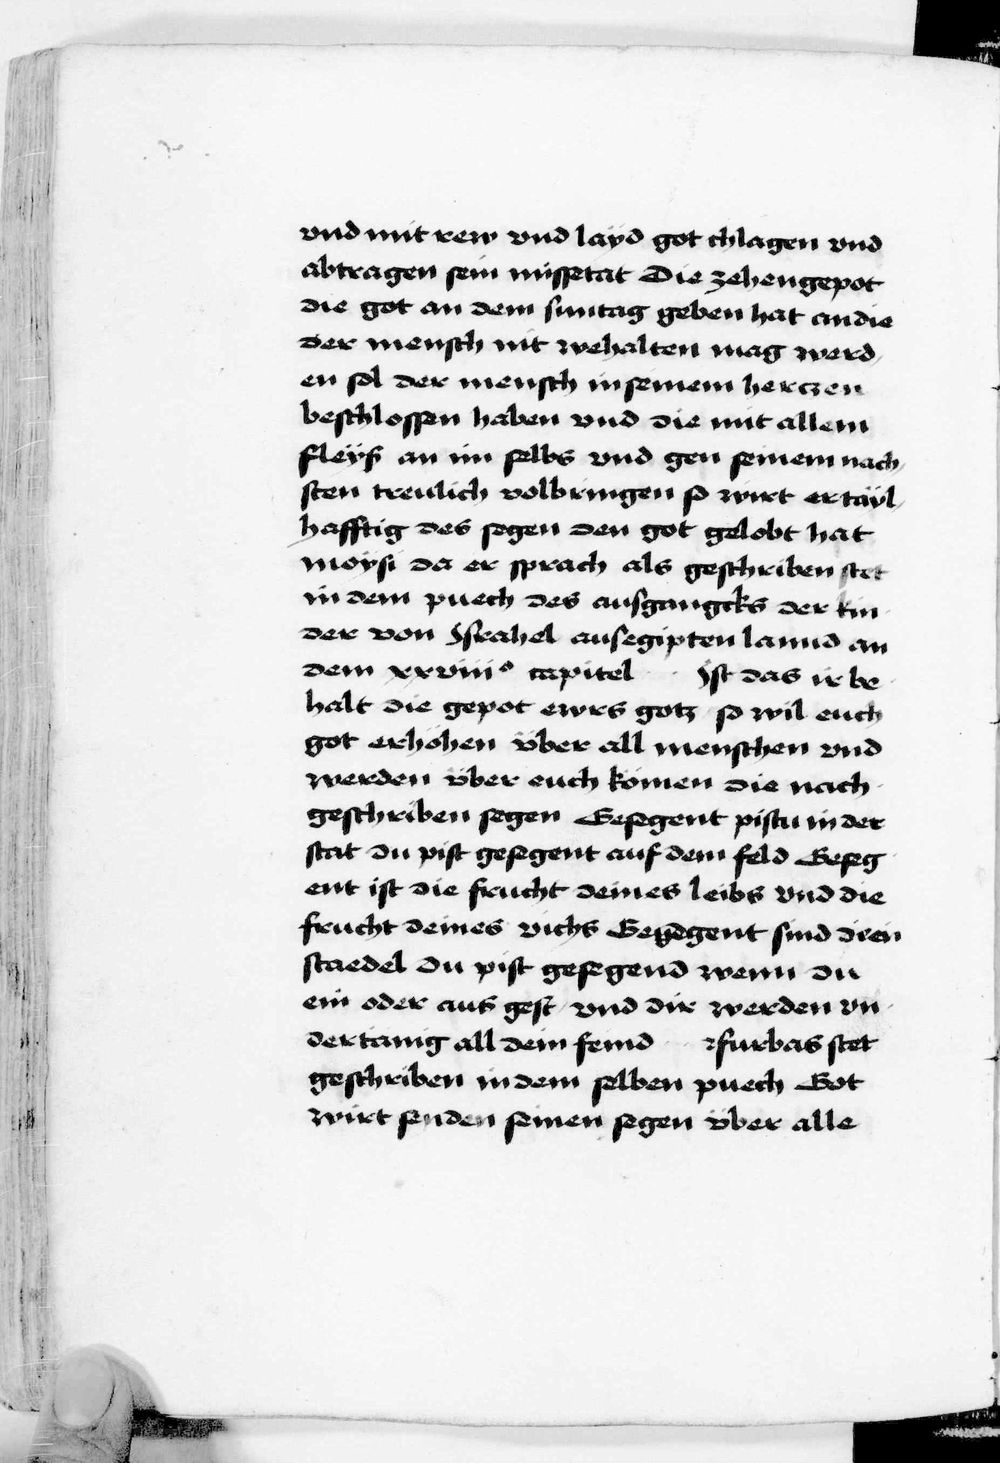 vnd mit rew vnd layd got chlagen vnd
abtragen sein missetat Die zehengepot
die got an dem suntag geben hat an die
der mensch nit wehalten mag werd
en sol der mensch in seinem herczen
beschlossen haben vnd die mit allem
fleÿß an im selbs vnd gen seinem nach
sten treulich volbringen so wirt er taÿl
hafftig des segen den got gelobt hat
moÿsi da er sprach als geschriben stet
in dem puech des ausgangcks der kin
der von Jsrahel aus egipten lannd an
dem xxviiiᵒ capitel Jst das ir be
halt die gepot ewrs gotz so wil euch
got erhöhen über all menschen vnd
werden über euch kömen die nach
geschriben segen Gesegent pistu in der
stat du pist gesegent auf dem feld Geseg
ent ist die frucht deines leibs vnd die
frucht deines vichs Gesegent sind dein
staedel du pist gesegend wenn du
ein oder aus gest vnd dir werden vn
dertanig all dein feind furbas stet
geschriben in dem selben puech Got
wirt senden seinen segen über alle